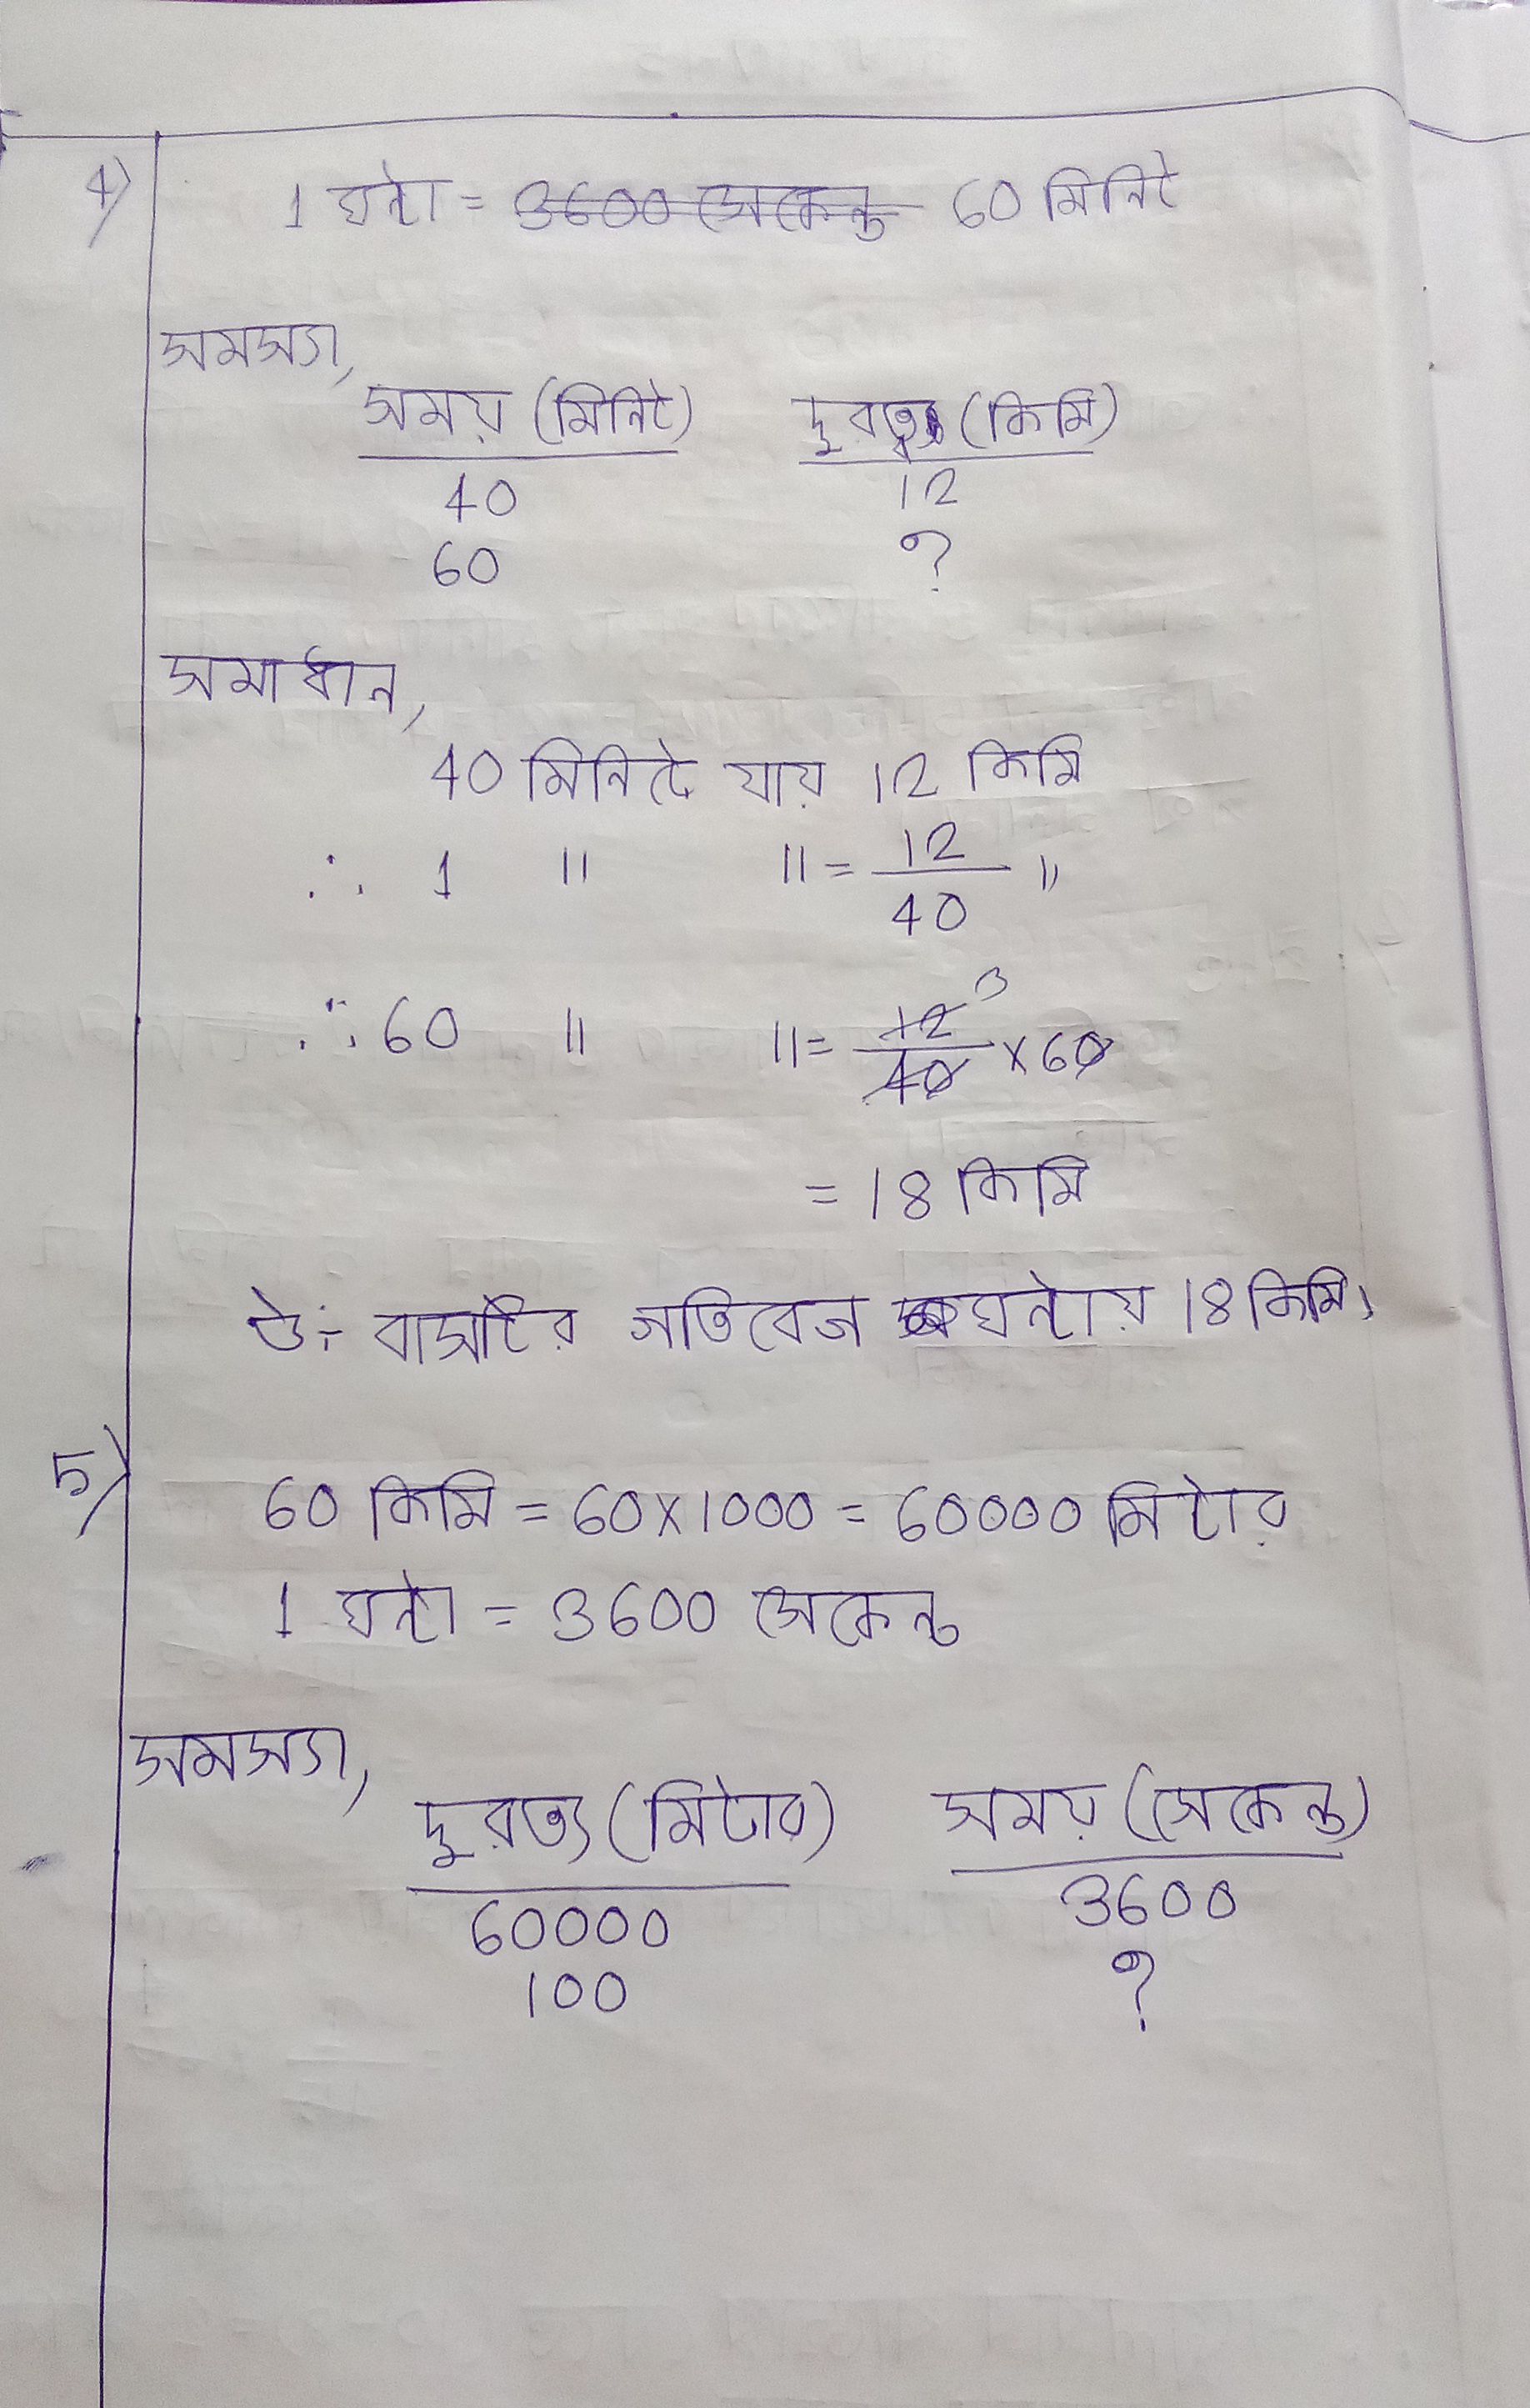 4) 1 ঘন্টা = 3600 সেকেন্ড 60 মিনিট
সমস্যা,
সময় (মিনিট) দুরত্ব (কিমি)
40 12
60 ?
সমাধান,
40 মিনিটে যায় 12 কিমি
∴ 1 " " = 12/40 "
∴ 60 " " = 12/40 3 × 60
= 18 কিমি
উঃ- বাসটির গতিবেগ ঘন্টায় 18 কিমি।
5) 60 কিমি = 60×1000 = 60000 মিটার
1 ঘন্টা = 3600 সেকেন্ড
সমস্যা,
দুরত্ব (মিটার) সময় (সেকেন্ড)
60000 3600
100 ?